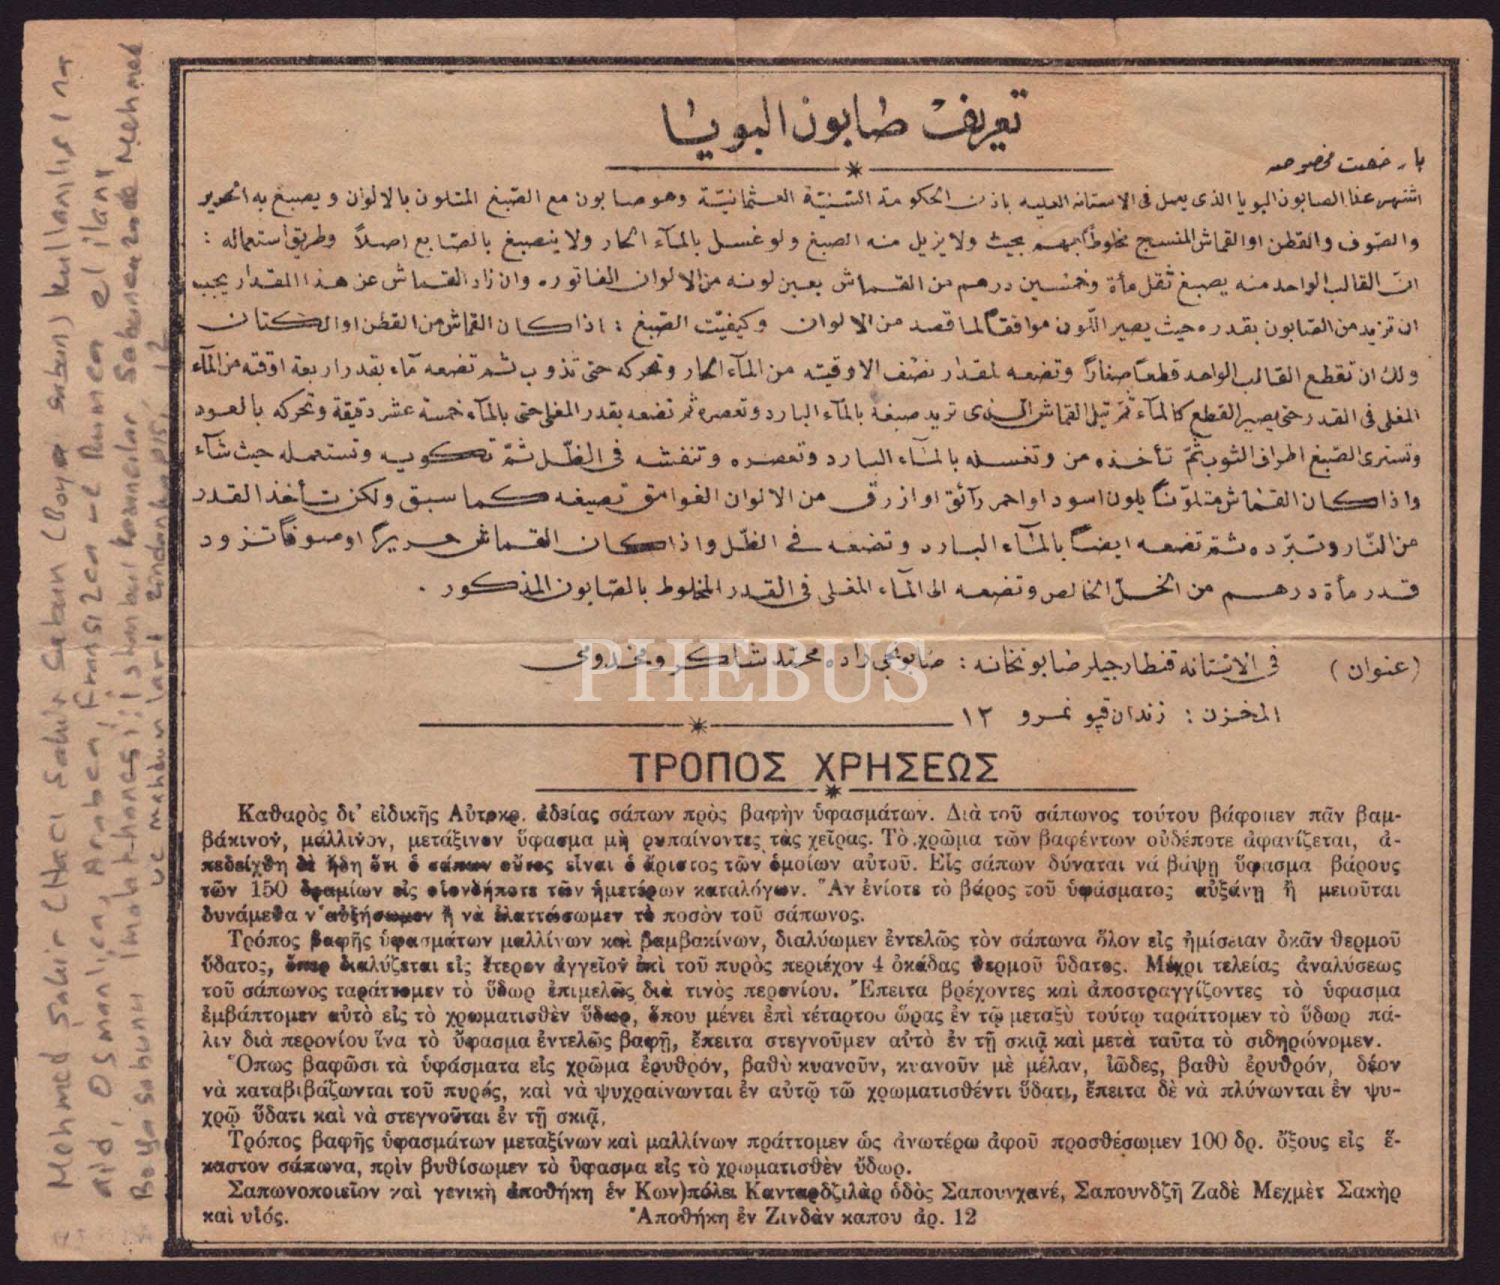 تعريف صابون البويا
بار خصت مخصوصه
اشتهر هذا الصابون البويا الذي يعمل في الاستانه العليه باذن الحكومة السنيّة العثمانيّة وهو صابون مع الصّبغ المتلون بالالوان ويصبغ به الحرير
والصّوف والقطن او القماش المنسج مخلوطاً بحيث ولا يزيل منه الصبغ ولو غسل بالمآء الحار ولا ينصبغ بالصّابع اصلاً وطريق استعماله :
انّ القالب الواحد منه يصبغ ثقل مأة وخمسين درهم من القماش بعين لونه من الالوان الفاتوره وان زاد القماش عن هذا المقدار يجب
ان تزيد من الصّابون بقدره حيث يصير اللّون موافقاً لما قصد من الالوان وكيفيّت الصّبغ : اذا كان القماش من القطن او الكتان
ولك ان تقطع القالب الواحد قطعاً صغاراً وتضعه لمقدار نصف الاوقيته من المآء الحار وتحركه حتى تذوب ثم تضعه مآء بقدر اربعة اوقته من المآء
المغلى في القدر حتى يصير القطع كالمآء ثمّ تبل القماش الذى تريد صبغه بالمآء البارد وتعصره ثم تضعه بقدر المغلى حتى بالمآء خمسة عشر دقيقة وتحركه بالعود
وتسترى الصّبغ اطراف الثوب ثمّ تأخذه من وتغسله بالمآء البارد وتعصره وتنفشه في الظّل ثمّ تكويه وتستعمله حيث شآء
واذا كان القماش متلوّناً بلون اسود او احمر رآئق او ازرق من الالوان الغوامق تصبغه كما سبق ولكن تأخذ القدر
من النّار وتبرّده ثمّ تضعه ايضاً بالمآء البارد وتضعه في الظّل واذا كان القماش حريراً او صوفاً تزود
قدر مأة درهم من الخلّ الخالص وتضعه الى المآء المغلى في القدر المخلوط بالصّابون المذكور .
(عنوان) في الاستانه قنطارجيلر صابونخانه : صابونجي زاده محمد شاكر ومخدومي
المخزن : زندان قپو نمرو ١٢
PHEBUS
ΤΡΟΠΟΣ ΧΡΗΣΕΩΣ
Καθαρὸς δι' εἰδικῆς Αὐτοκρ. ἀδείας σάπων πρὸς βαφὴν ὑφασμάτων. Διὰ τοῦ σάπωνος τούτου βάφομεν πᾶν βαμ-
βάκινον, μάλλινον, μετάξινον ὕφασμα μὴ ρυπαίνοντες τὰς χεῖρας. Τὸ χρῶμα τῶν βαφέντων οὐδέποτε ἀφανίζεται, ἀ-
πεδείχθη δὲ ἤδη ὅτι ὁ σάπων οὗτος εἶναι ὁ ἄριστος τῶν ὁμοίων αὐτοῦ. Εἷς σάπων δύναται νὰ βάψῃ ὕφασμα βάρους
τῶν 150 δραμίων εἰς οἱονδήποτε τῶν ἡμετέρων καταλόγων. Ἂν ἐνίοτε τὸ βάρος τοῦ ὑφάσματος αὐξάνῃ ἢ μειοῦται
δυνάμεθα ν' αὐξήσωμεν ἢ νὰ ἐλαττώσωμεν τὸ ποσὸν τοῦ σάπωνος.
Τρόπος βαφῆς ὑφασμάτων μαλλίνων καὶ βαμβακίνων, διαλύωμεν ἐντελῶς τὸν σάπωνα ὅλον εἰς ἡμίσειαν ὀκᾶν θερμοῦ
ὕδατος, ὅπερ διαλύζεται εἰς ἕτερον ἀγγεῖον ἐπὶ τοῦ πυρὸς περιέχον 4 ὀκάδας θερμοῦ ὕδατος. Μέχρι τελείας ἀναλύσεως
τοῦ σάπωνος ταράττομεν τὸ ὕδωρ ἐπιμελῶς διὰ τινὸς περονίου. Ἔπειτα βρέχοντες καὶ ἀποστραγγίζοντες τὸ ὑφασμα
ἐμβάπτομεν αὐτὸ εἰς τὸ χρωματισθὲν ὕδωρ, ὅπου μένει ἐπὶ τέταρτου ὥρας ἐν τῷ μεταξὺ τούτῳ ταράττομεν τὸ ὕδωρ πά-
λιν διὰ περονίου ἵνα τὸ ὕφασμα ἐντελῶς βαφῇ, ἔπειτα στεγνοῦμεν αὐτὸ ἐν τῇ σκιᾷ καὶ μετὰ ταῦτα τὸ σιδηρώνομεν.
Ὅπως βαφῶσι τὰ ὑφάσματα εἰς χρῶμα ἐρυθρόν, βαθὺ κυανοῦν, κυανοῦν μὲ μέλαν, ἰῶδες, βαθὺ ἐρυθρόν, δέον
νὰ καταβιβάζωνται τοῦ πυρός, καὶ νὰ ψυχραίνωνται ἐν αὐτῷ τῷ χρωματισθέντι ὕδατι, ἔπειτα δὲ νὰ πλύνωνται ἐν ψυ-
χρῷ ὕδατι καὶ νὰ στεγνοῦται ἐν τῇ σκιᾷ.
Τρόπος βαφῆς ὑφασμάτων μεταξίνων καὶ μαλλίνων πράττομεν ὡς ἀνωτέρω ἀφοῦ προσθέσωμεν 100 δρ. ὄξους εἰς ἕ-
καστον σάπωνα, πρὶν βυθίσωμεν τὸ ὕφασμα εἰς τὸ χρωματισθὲν ὕδωρ.
Σαπωνοποιεῖον καὶ γενικὴ ἀποθήκη ἐν Κων)πόλει Κανταρδζιλὰρ ὁδὸς Σαπουνχανέ, Σαπουνδζῆ Ζαδὲ Μεχμὲτ Σακὴρ
καὶ υἱός. Ἀποθήκη ἐν Ζινδὰν καπου ἀρ. 12
Mehmed Şakir (Hacı Şakir Sabun (Boya sabun) kullanılışına
aid, Osmanlıca, Arabca, Fransızca ve Rumca el ilanı
Boya sabunu İmalathanesi: İstanbul Sabuncuzade Mehmed
ve mahdumları Zindankapısı, 12